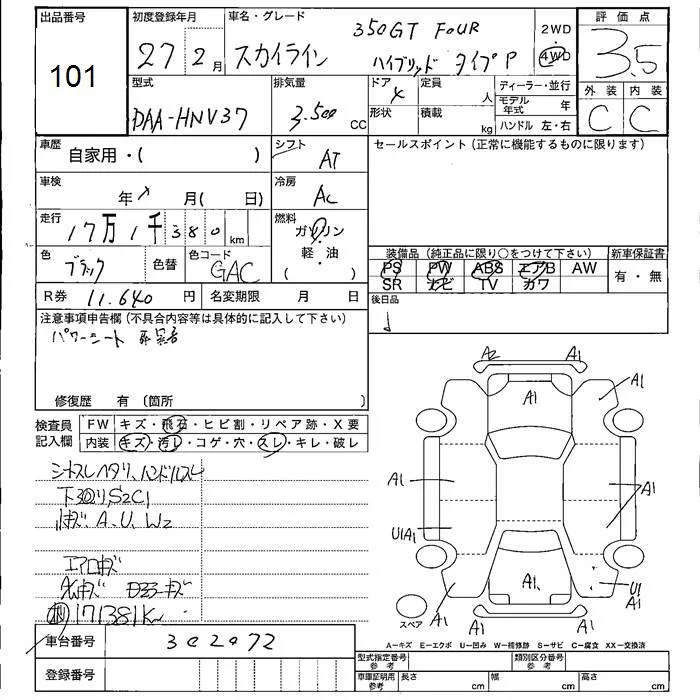 出品番号
101
初度登録年月
27年 2月
車名・グレード
350GT FOUR
スカイライン ハイブリッド タイプP
2WD
4WD
評価点
3.5
外装 内装
C C
型式
DAA-HNV37
排気量
3.500 CC
ドア
4
定員
人
形状
積載
kg
ディーラー・並行
モデル年式 年
ハンドル 左・右
車歴
自家用・( )
シフト
AT
セールスポイント(正常に機能するものに限ります)
車検
年 月( 日)
冷房
AC
走行
17万1千380km
燃料
ガソリン
軽・油
( )
色
ブラック
色替
色コード
GAC
装備品(純正品に限り○をつけて下さい)
新車保証書
PS PW ABS エアB AW
SR ナビ TV カワ
有・無
R券
11.640円
名変期限 月 日
後日品
注意事項申告欄(不具合内容等は具体的に記入して下さい)
パワーシート
修復歴 有〔箇所 〕
検査員記入欄
FW キズ・飛石・ヒビ割・リペア跡・X要
内装 キズ・汚レ・コゲ・穴・スレ・キレ・破レ
シートスレヘタリ、ハンドルスレ
下回りS2C1
A.U.W2
エアロキズ
171381km
A2 A1
A1
A1
A1
A1
U1A1
A1
A1
U1
A1
A1
A1
スペア
A-キズ E-エクボ U-凹み W-補修跡 S-サビ C-腐食 XX-交換済
車台番号
302072
登録番号
型式指定番号
参考
類別区分番号
参考
車庫証明用
参考
長さ cm
幅 cm
高さ cm